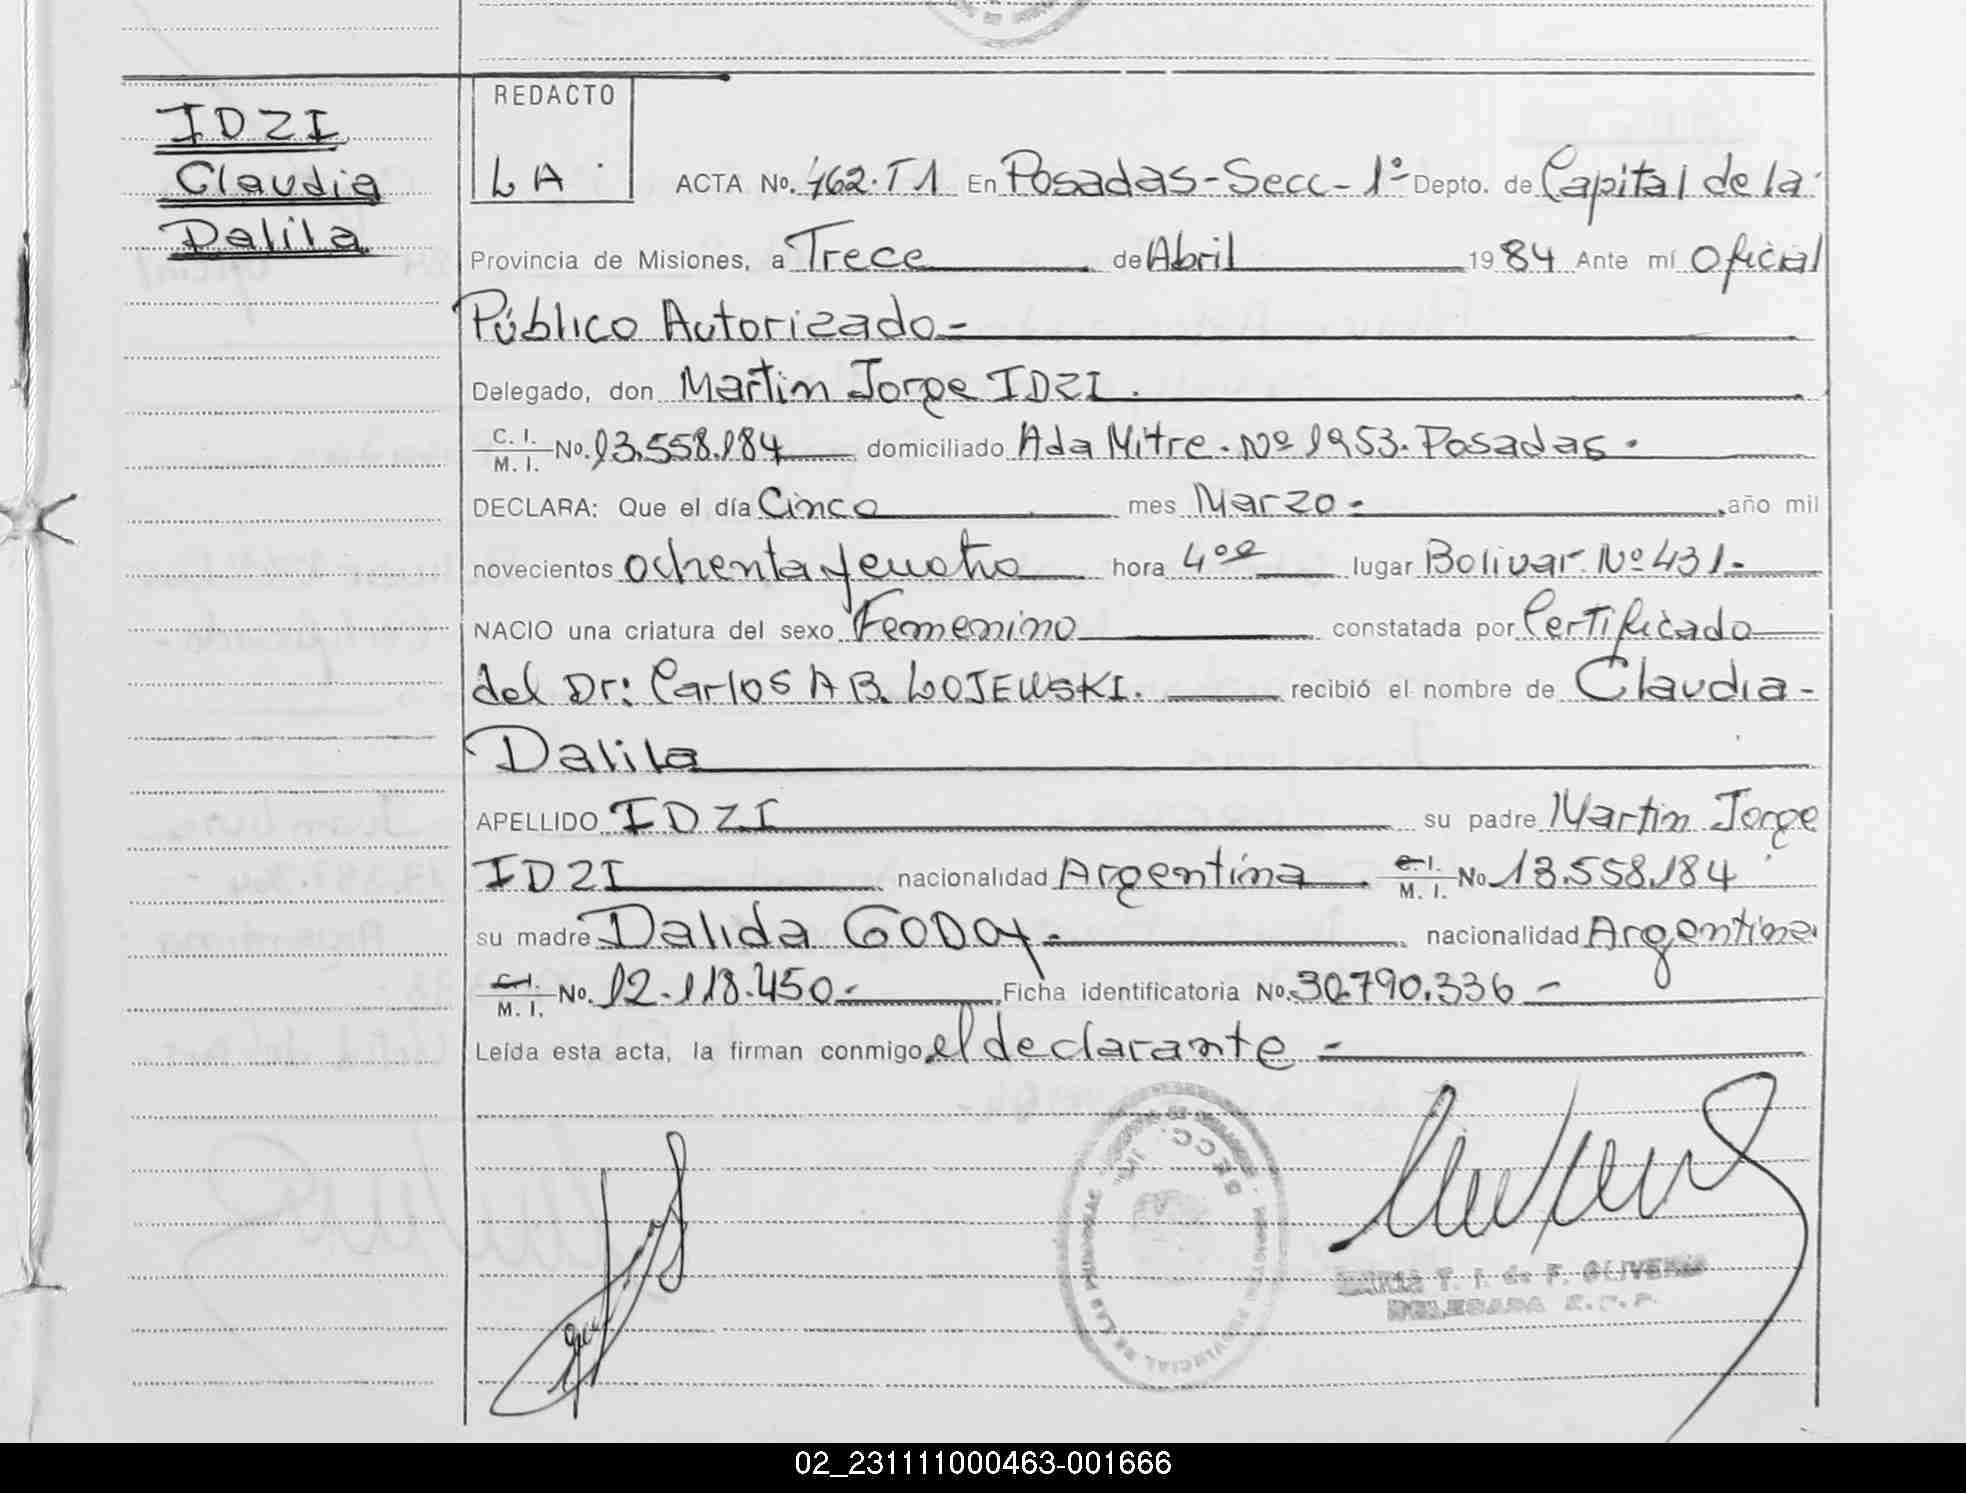 IDZI
Claudia
Dalila
REDACTO
LA.
ACTA No. 462.T1 En Posadas-Secc-1º Depto. de Capital de la
Provincia de Misiones, a Trece de Abril 1984 Ante mí Oficial
Público Autorizado-
Delegado, don Martin Jorge IDZI.
C. I. M. I. No. 13.558.184 domiciliado Ada Mitre. Nº 1953. Posadas.
DECLARA: Que el día Cinco mes Marzo- , año mil
novecientos ochenta y cuatro hora 4⁰⁰ lugar Bolivar Nº 431-
NACIO una criatura del sexo Femenino constatada por Certificado
del Dr: Carlos A B. LOJEWSKI. recibió el nombre de Claudia-
Dalila
APELLIDO IDZI su padre Martin Jorge
IDZI nacionalidad Argentina C.I. M. I. No 13.558.184
su madre Dalida GODOY- nacionalidad Argentina
C.I. M. I. No. 12.118.450- Ficha identificatoria No. 30.790.336-
Leída esta acta, la firman conmigo el declarante-
SECC. 1RA.
T. I. de F. OLIVERA
DELEGADA R.P.P.
02_231111000463-001666